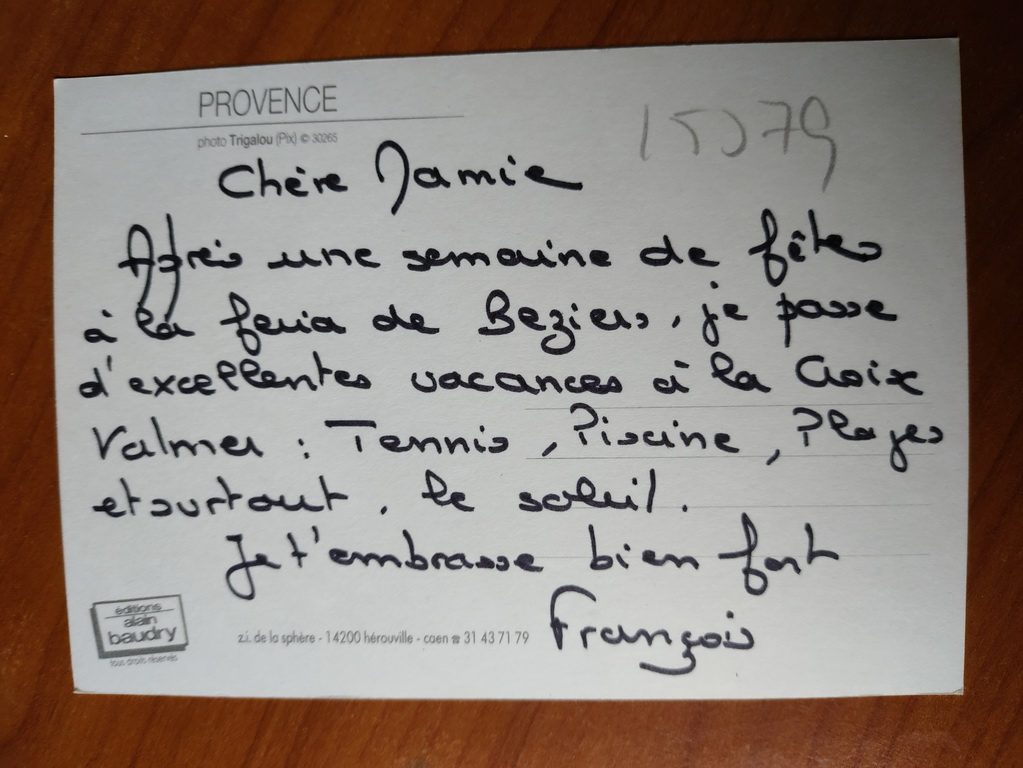 PROVENCE
photo Trigalou (Pix) © 30265
15079
Chère Mamie
Après une semaine de fêtes
à la feria de Beziers, je passe
d'excellentes vacances à la Croix
Valmer : Tennis, Piscine, Plages
et surtout, le soleil.
Je t'embrasse bien fort
François
éditions
alain
baudry
tous droits réservés
z.i. de la sphère - 14200 hérouville - caen ☎ 31 43 71 79